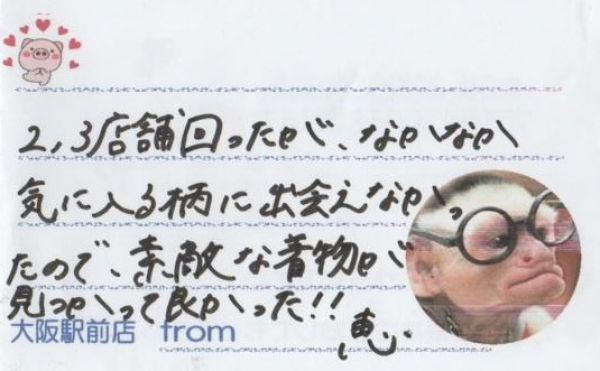 2,3店舗回ったが、なかなか
気に入る柄に出会えなかっ
たので、素敵な着物が
見つかって良かった!!
大阪駅前店 from 恵